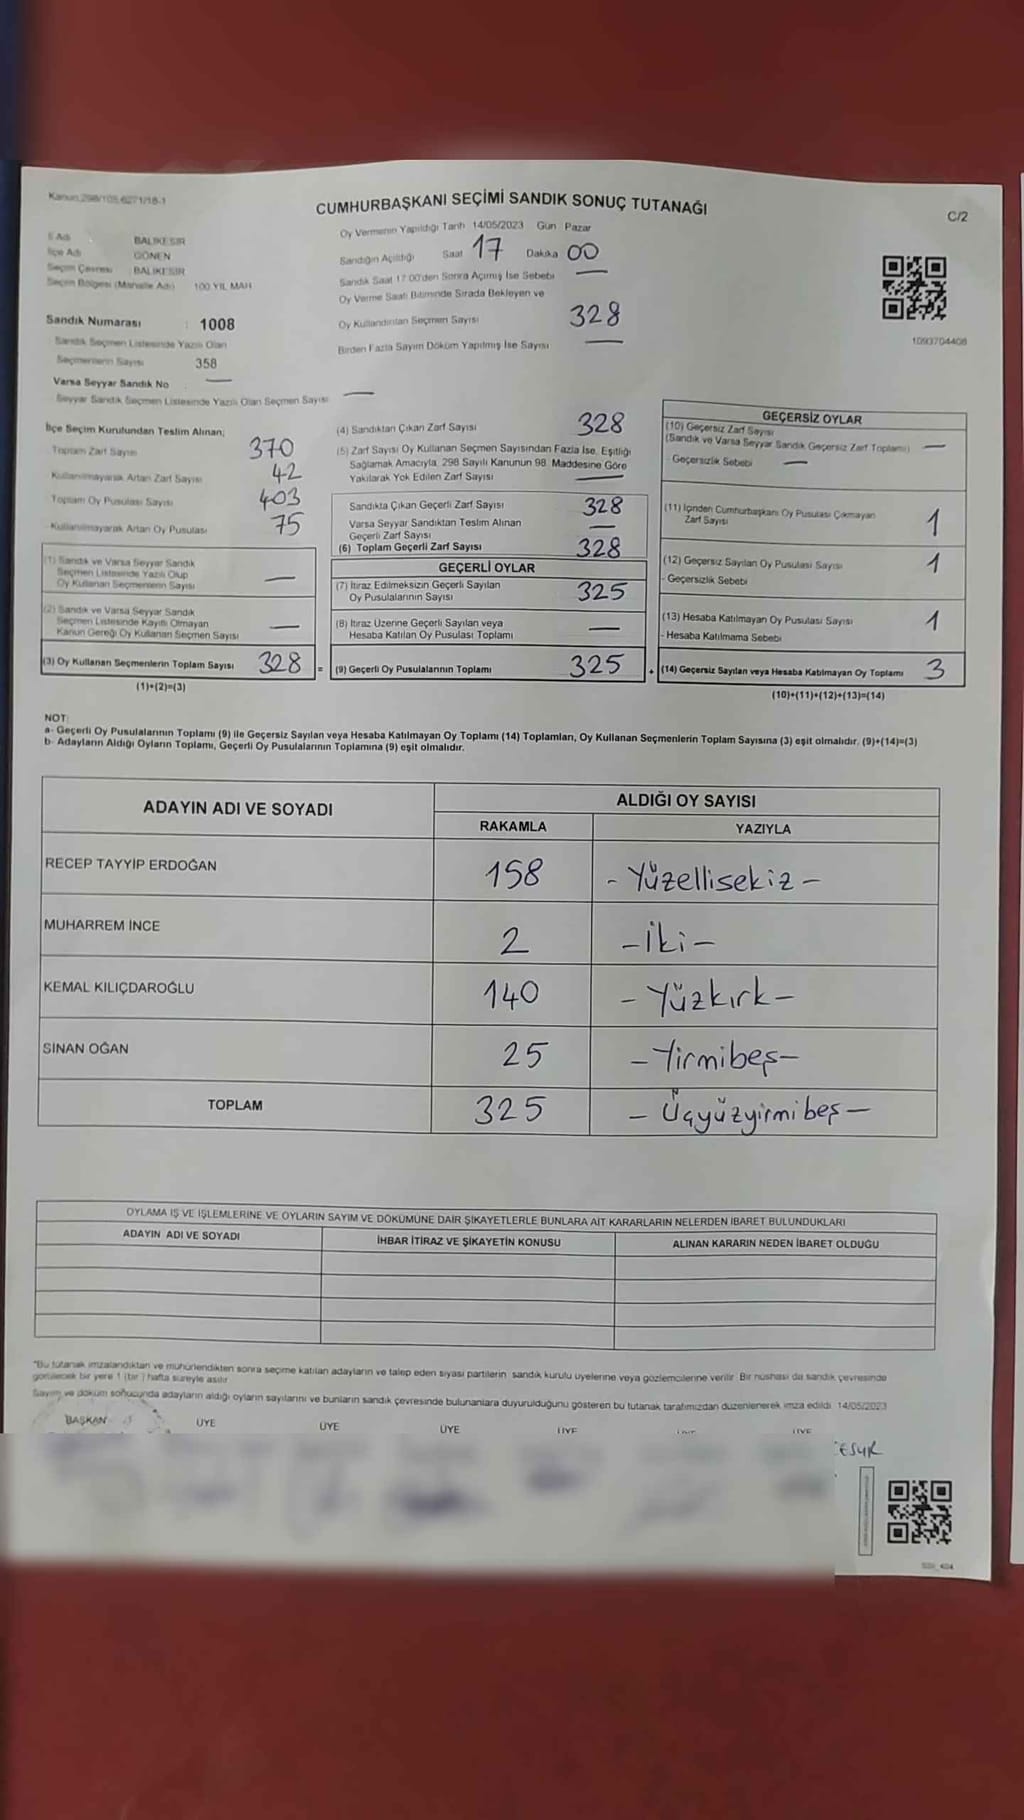 Kanun:298/105,6271/18-1
CUMHURBAŞKANI SEÇİMİ SANDIK SONUÇ TUTANAĞI
C/2
İl Adı BALIKESİR
İlçe Adı GÖNEN
Seçim Çevresi BALIKESİR
Seçim Bölgesi (Mahalle Adı) 100.YIL MAH
Sandık Numarası : 1008
Sandık Seçmen Listesinde Yazılı Olan
Seçmenlerin Sayısı 358
Varsa Seyyar Sandık No —
Seyyar Sandık Seçmen Listesinde Yazılı Olan Seçmen Sayısı —
Oy Vermenin Yapıldığı Tarih 14/05/2023 Gün Pazar
Sandığın Açıldığı Saat 17 Dakika 00
Sandık Saat 17:00'den Sonra Açımış İse Sebebi —
Oy Verme Saati Bitiminde Sırada Bekleyen ve
Oy Kullandırılan Seçmen Sayısı 328
Birden Fazla Sayım Döküm Yapılmış İse Sayısı —
1093704408
İlçe Seçim Kurulundan Teslim Alınan;
Toplam Zarf Sayısı 370
Kullanılmayarak Artan Zarf Sayısı 42
Toplam Oy Pusulası Sayısı 403
- Kullanılmayarak Artan Oy Pusulası 75
(1) Sandık ve Varsa Seyyar Sandık
Seçmen Listesinde Yazılı Olup
Oy Kullanan Seçmenlerin Sayısı —
(2) Sandık ve Varsa Seyyar Sandık
Seçmen Listesinde Kayıtlı Olmayan
Kanun Gereği Oy Kullanan Seçmen Sayısı —
(3) Oy Kullanan Seçmenlerin Toplam Sayısı 328 =
(1)+(2)=(3)
(4) Sandıktan Çıkan Zarf Sayısı 328
(5) Zarf Sayısı Oy Kullanan Seçmen Sayısından Fazla İse, Eşitliği
Sağlamak Amacıyla, 298 Sayılı Kanunun 98. Maddesine Göre
Yakılarak Yok Edilen Zarf Sayısı —
Sandıkta Çıkan Geçerli Zarf Sayısı 328
Varsa Seyyar Sandıktan Teslim Alınan
Geçerli Zarf Sayısı —
(6) Toplam Geçerli Zarf Sayısı 328
GEÇERLİ OYLAR
(7) İtiraz Edilmeksizin Geçerli Sayılan
Oy Pusulalarının Sayısı 325
(8) İtiraz Üzerine Geçerli Sayılan veya
Hesaba Katılan Oy Pusulası Toplamı —
(9) Geçerli Oy Pusulalarının Toplamı 325 +
GEÇERSİZ OYLAR
(10) Geçersiz Zarf Sayısı
(Sandık ve Varsa Seyyar Sandık Geçersiz Zarf Toplamı) —
- Geçersizlik Sebebi —
(11) İçinden Cumhurbaşkanı Oy Pusulası Çıkmayan
Zarf Sayısı 1
(12) Geçersiz Sayılan Oy Pusulası Sayısı 1
- Geçersizlik Sebebi
(13) Hesaba Katılmayan Oy Pusulası Sayısı 1
- Hesaba Katılmama Sebebi
(14) Geçersiz Sayılan veya Hesaba Katılmayan Oy Toplamı 3
(10)+(11)+(12)+(13)=(14)
NOT:
a- Geçerli Oy Pusulalarının Toplamı (9) ile Geçersiz Sayılan veya Hesaba Katılmayan Oy Toplamı (14) Toplamları, Oy Kullanan Seçmenlerin Toplam Sayısına (3) eşit olmalıdır. (9)+(14)=(3)
b- Adayların Aldığı Oyların Toplamı, Geçerli Oy Pusulalarının Toplamına (9) eşit olmalıdır.
ADAYIN ADI VE SOYADI ALDIĞI OY SAYISI
RAKAMLA YAZIYLA
RECEP TAYYİP ERDOĞAN 158 - Yüzellisekiz -
MUHARREM İNCE 2 - İki -
KEMAL KILIÇDAROĞLU 140 - Yüzkırk -
SİNAN OĞAN 25 - Yirmibeş -
TOPLAM 325 - Üçyüzyirmibeş -
OYLAMA İŞ VE İŞLEMLERİNE VE OYLARIN SAYIM VE DÖKÜMÜNE DAİR ŞİKAYETLERLE BUNLARA AİT KARARLARIN NELERDEN İBARET BULUNDUKLARI
ADAYIN ADI VE SOYADI İHBAR İTİRAZ VE ŞİKAYETİN KONUSU ALINAN KARARIN NEDEN İBARET OLDUĞU
"Bu tutanak imzalandıktan ve mühürlendikten sonra seçime katılan adayların ve talep eden siyasi partilerin sandık kurulu üyelerine veya gözlemcilerine verilir. Bir nüshası da sandık çevresinde
görülecek bir yere 1 (bir ) hafta süreyle asılır.
Sayım ve döküm sonucunda adayların aldığı oyların sayılarını ve bunların sandık çevresinde bulunanlara duyurulduğunu gösteren bu tutanak tarafımızdan düzenlenerek imza edildi. 14/05/2023
BAŞKAN ÜYE ÜYE ÜYE ÜYE ÜYE